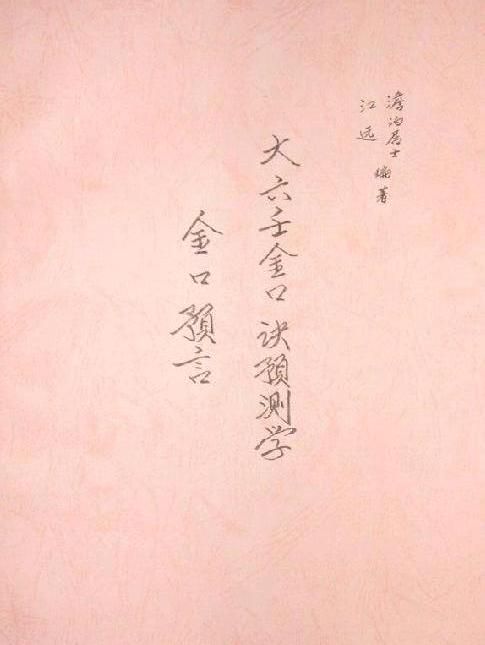 澹泊居士
江远 编著
大六壬金口诀预测学
金口预言